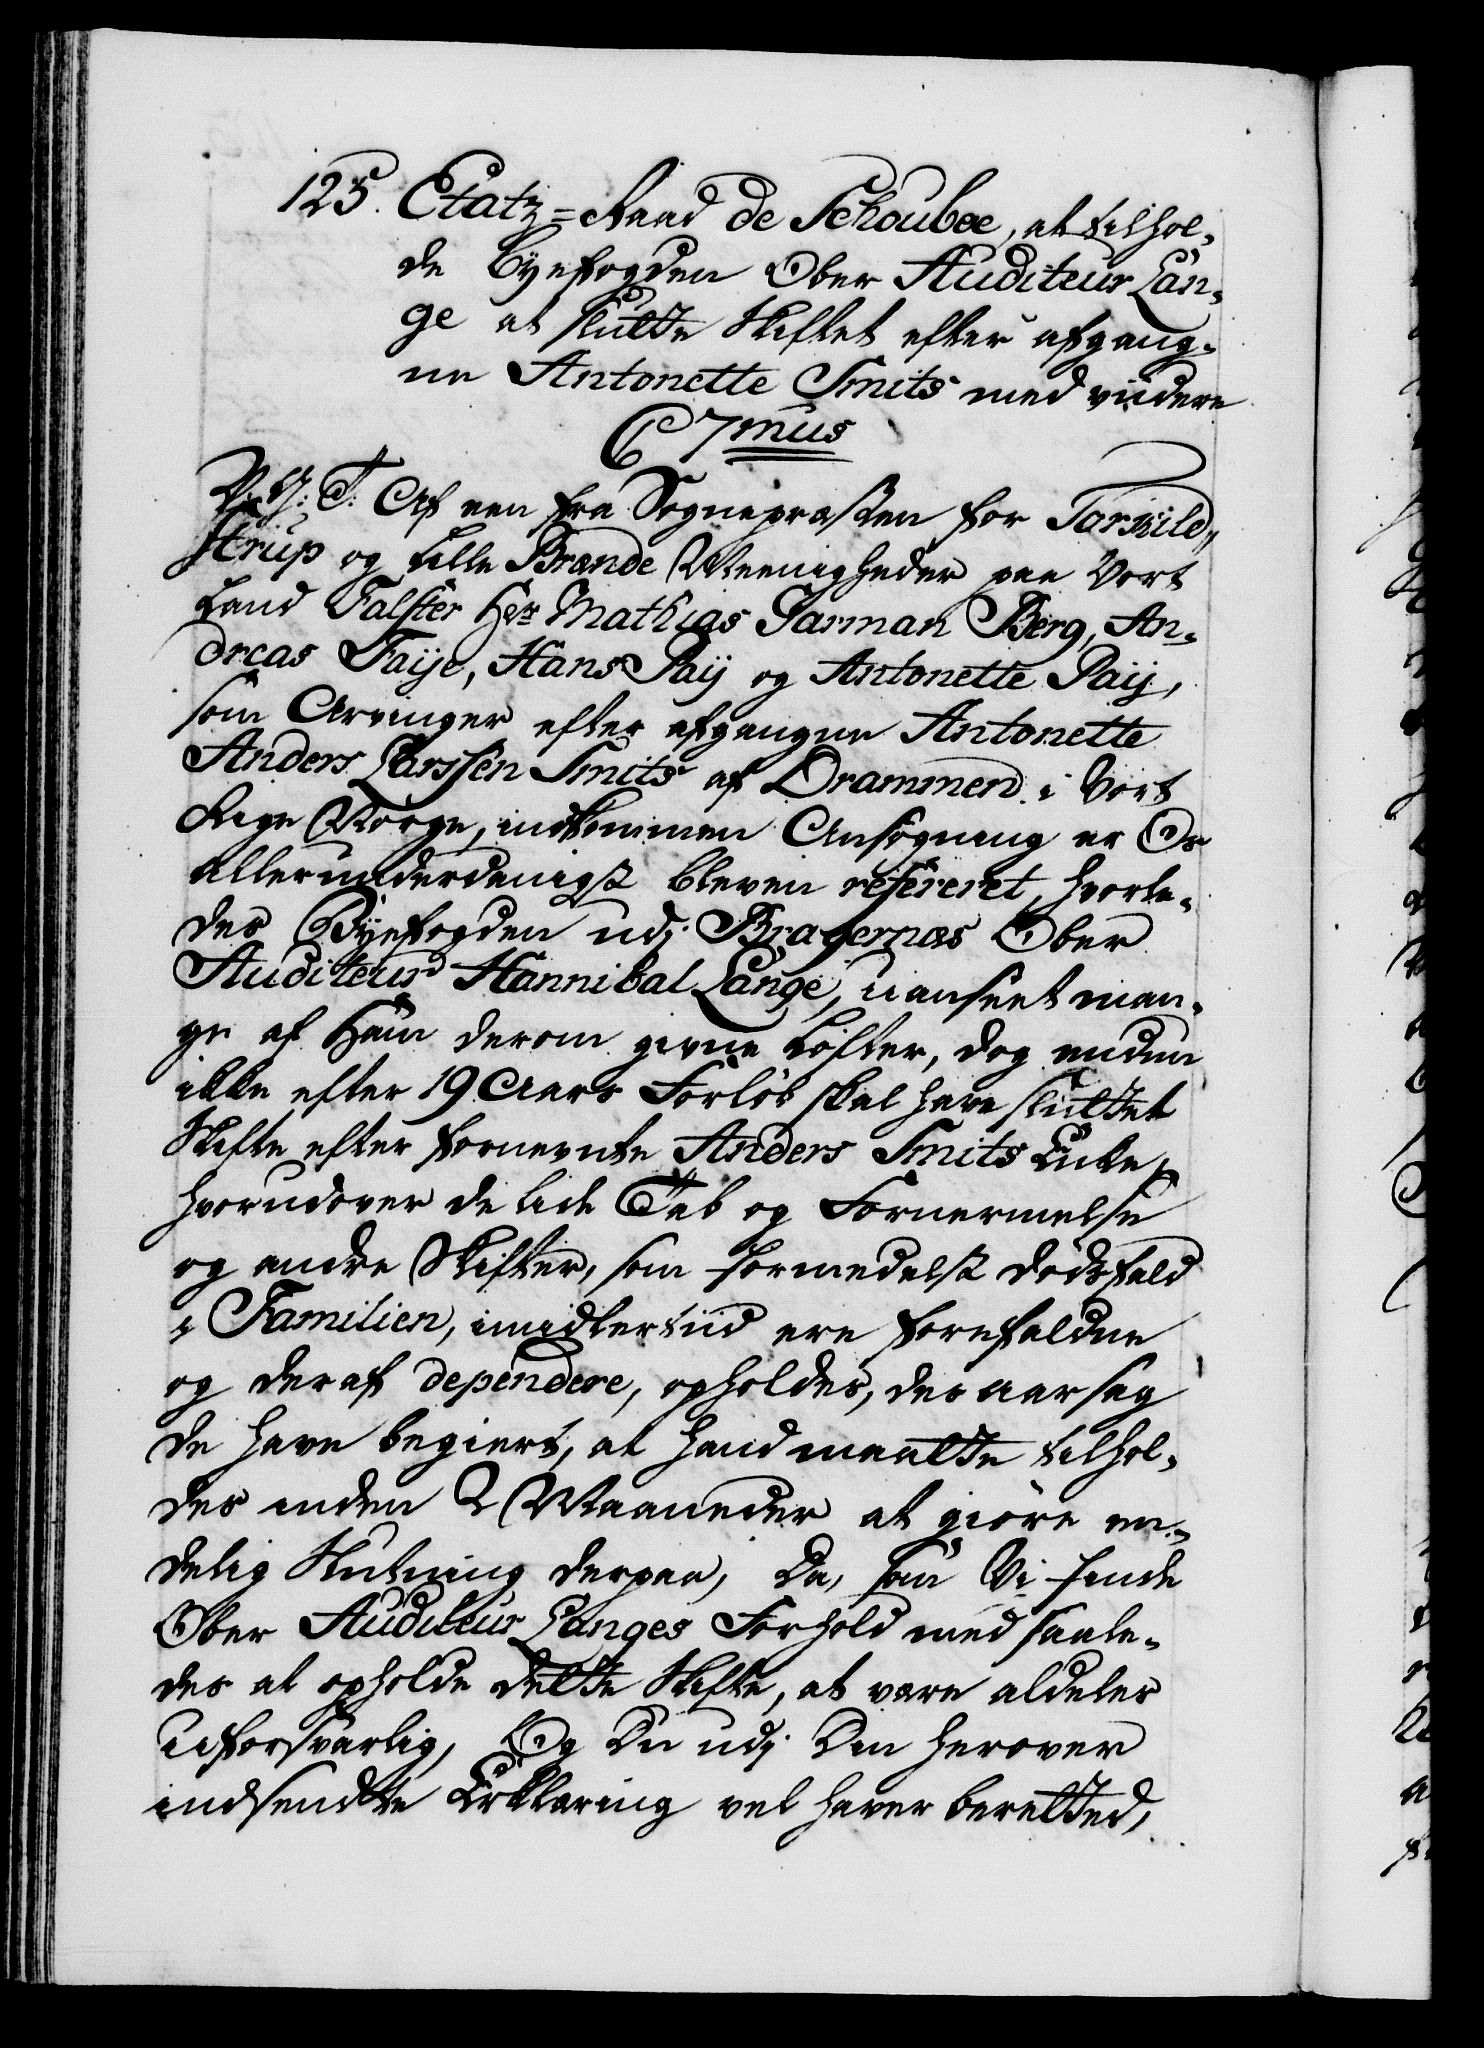 125. Etatz=Raad de Schouboe, at tilhol-
de Byefogden Ober Auditeur Lan-
ge at slutte Skiftet efter afgang-
ne Antonette Smits med viidere
C7mus
V. G: T: Af een fra Sognepræsten for Torkild-
strup og Lille Brænde Meenigheder paa Vort
Land Falster Hr Mathias Garman Berg, An-
dreas Faÿe, Hans Paÿ og Antonette Paÿ,
som Arvinger efter afgangne Antonette
Anders Larssen Smits af Drammen i Vort
Rige Norge, indkommen Ansøgning er Os
allerunderdanigst bleven refereret, hvorle-
des Byefogden udj Bragernæs Ober
Auditeur Hannibal Lange, uanseet man-
ge af Ham derom givne Løfter, dog endnu
ikke efter 19 Aars Forløb skal have sluttet
Skifte efter fornevnte Anders Smits Enke,
hvorudover de lide Tab og Fornermelse
og andre Skifter, som formedelst dødsfald
i Familien, imidlertiid ere forefaldne
og deraf dependere, opholdes, des aarsag
de have begiert, at hand maatte tilhol-
des inden 2 Maaneder at giøre en-
delig Slutning derpaa, Da, som Vi finde
Ober Auditeur Langes Forhold med saale-
des at opholde dette Skifte, at være aldeles
uforsvarlig, Og Du udj Din herover
indsendte Erklæring vel haver berettet,